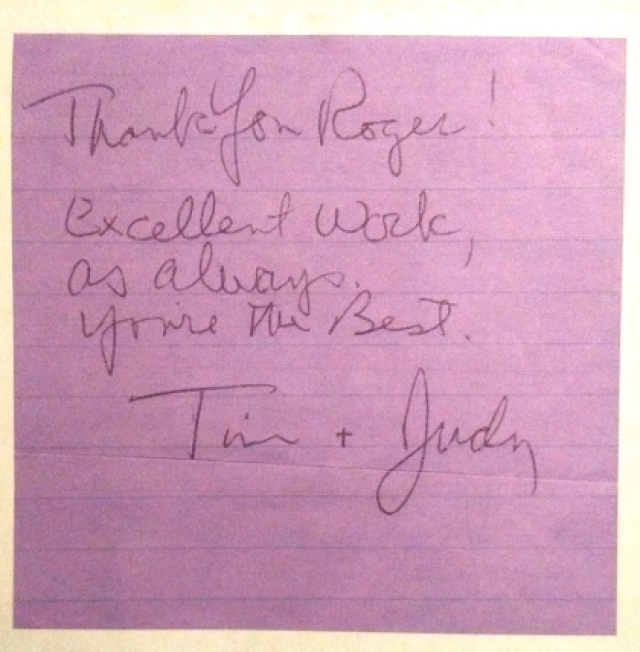 Thank You Roger!
Excellent Work,
as always.
You're the Best.
Tim + Judy